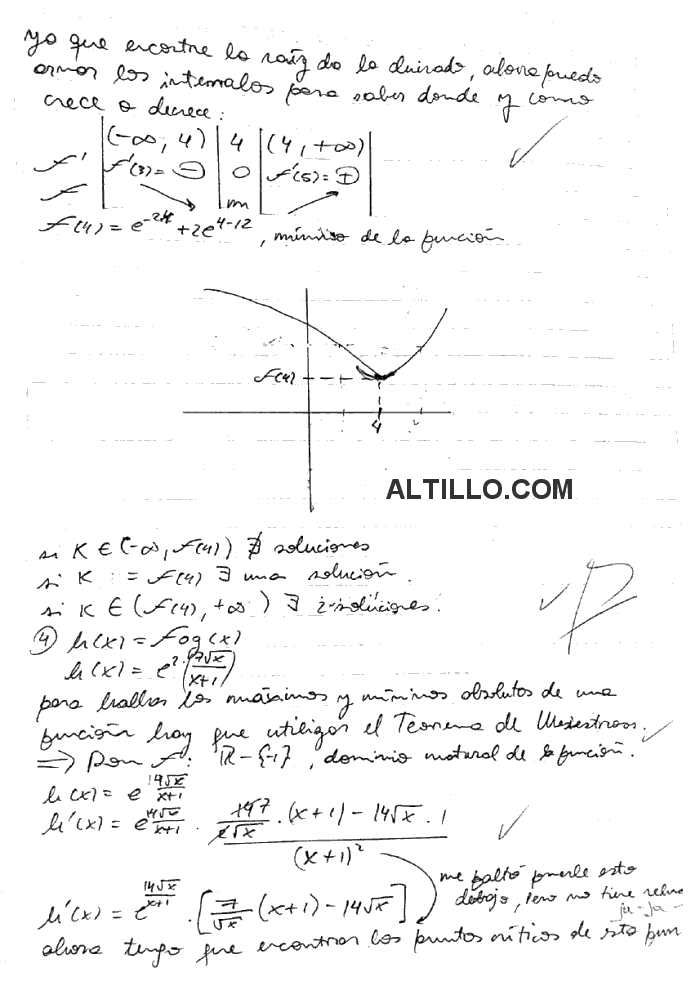 ya que encontre la raíz de la derivada, ahora puedo
armar los intervalos para saber donde y como
crece o decrece:
(-∞, 4) | 4 | (4, +∞)
f' | f'(3) = ⊖ | 0 | f'(5) = ⊕
f | m
f(4) = e^-24 + 2e^4-12, mínimo de la función
f(4)
4
ALTILLO.COM
si K ∈ (-∞, f(4)) ∄ soluciones
si K = f(4) ∃ una solución.
si K ∈ (f(4), +∞) ∃ 2 soluciones.
④ h(x) = fog(x)
h(x) = e^2·(7√x/x+1)
para hallar los máximos y mínimos absolutos de una
función hay que utilizar el Teorema de Weierstrass.
⇒ Dom f: ℝ - {-1}, dominio natural de la función.
h(x) = e^14√x/x+1
h'(x) = e^14√x/x+1 · 14 7/2√x · (x+1) - 14√x · 1
(x+1)^2
me faltó ponerle esto
h'(x) = e^14√x/x+1 · [7/√x (x+1) - 14√x] debajo, pero no tiene
ja-ja
ahora tengo que encontrar los puntos críticos de esta fun